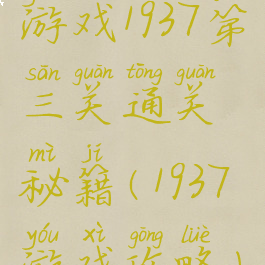 游戏1937第
sān guān tōng guān
三关通关
mì jí
秘籍(1937
yóu xì gōng lüè
游戏攻略)